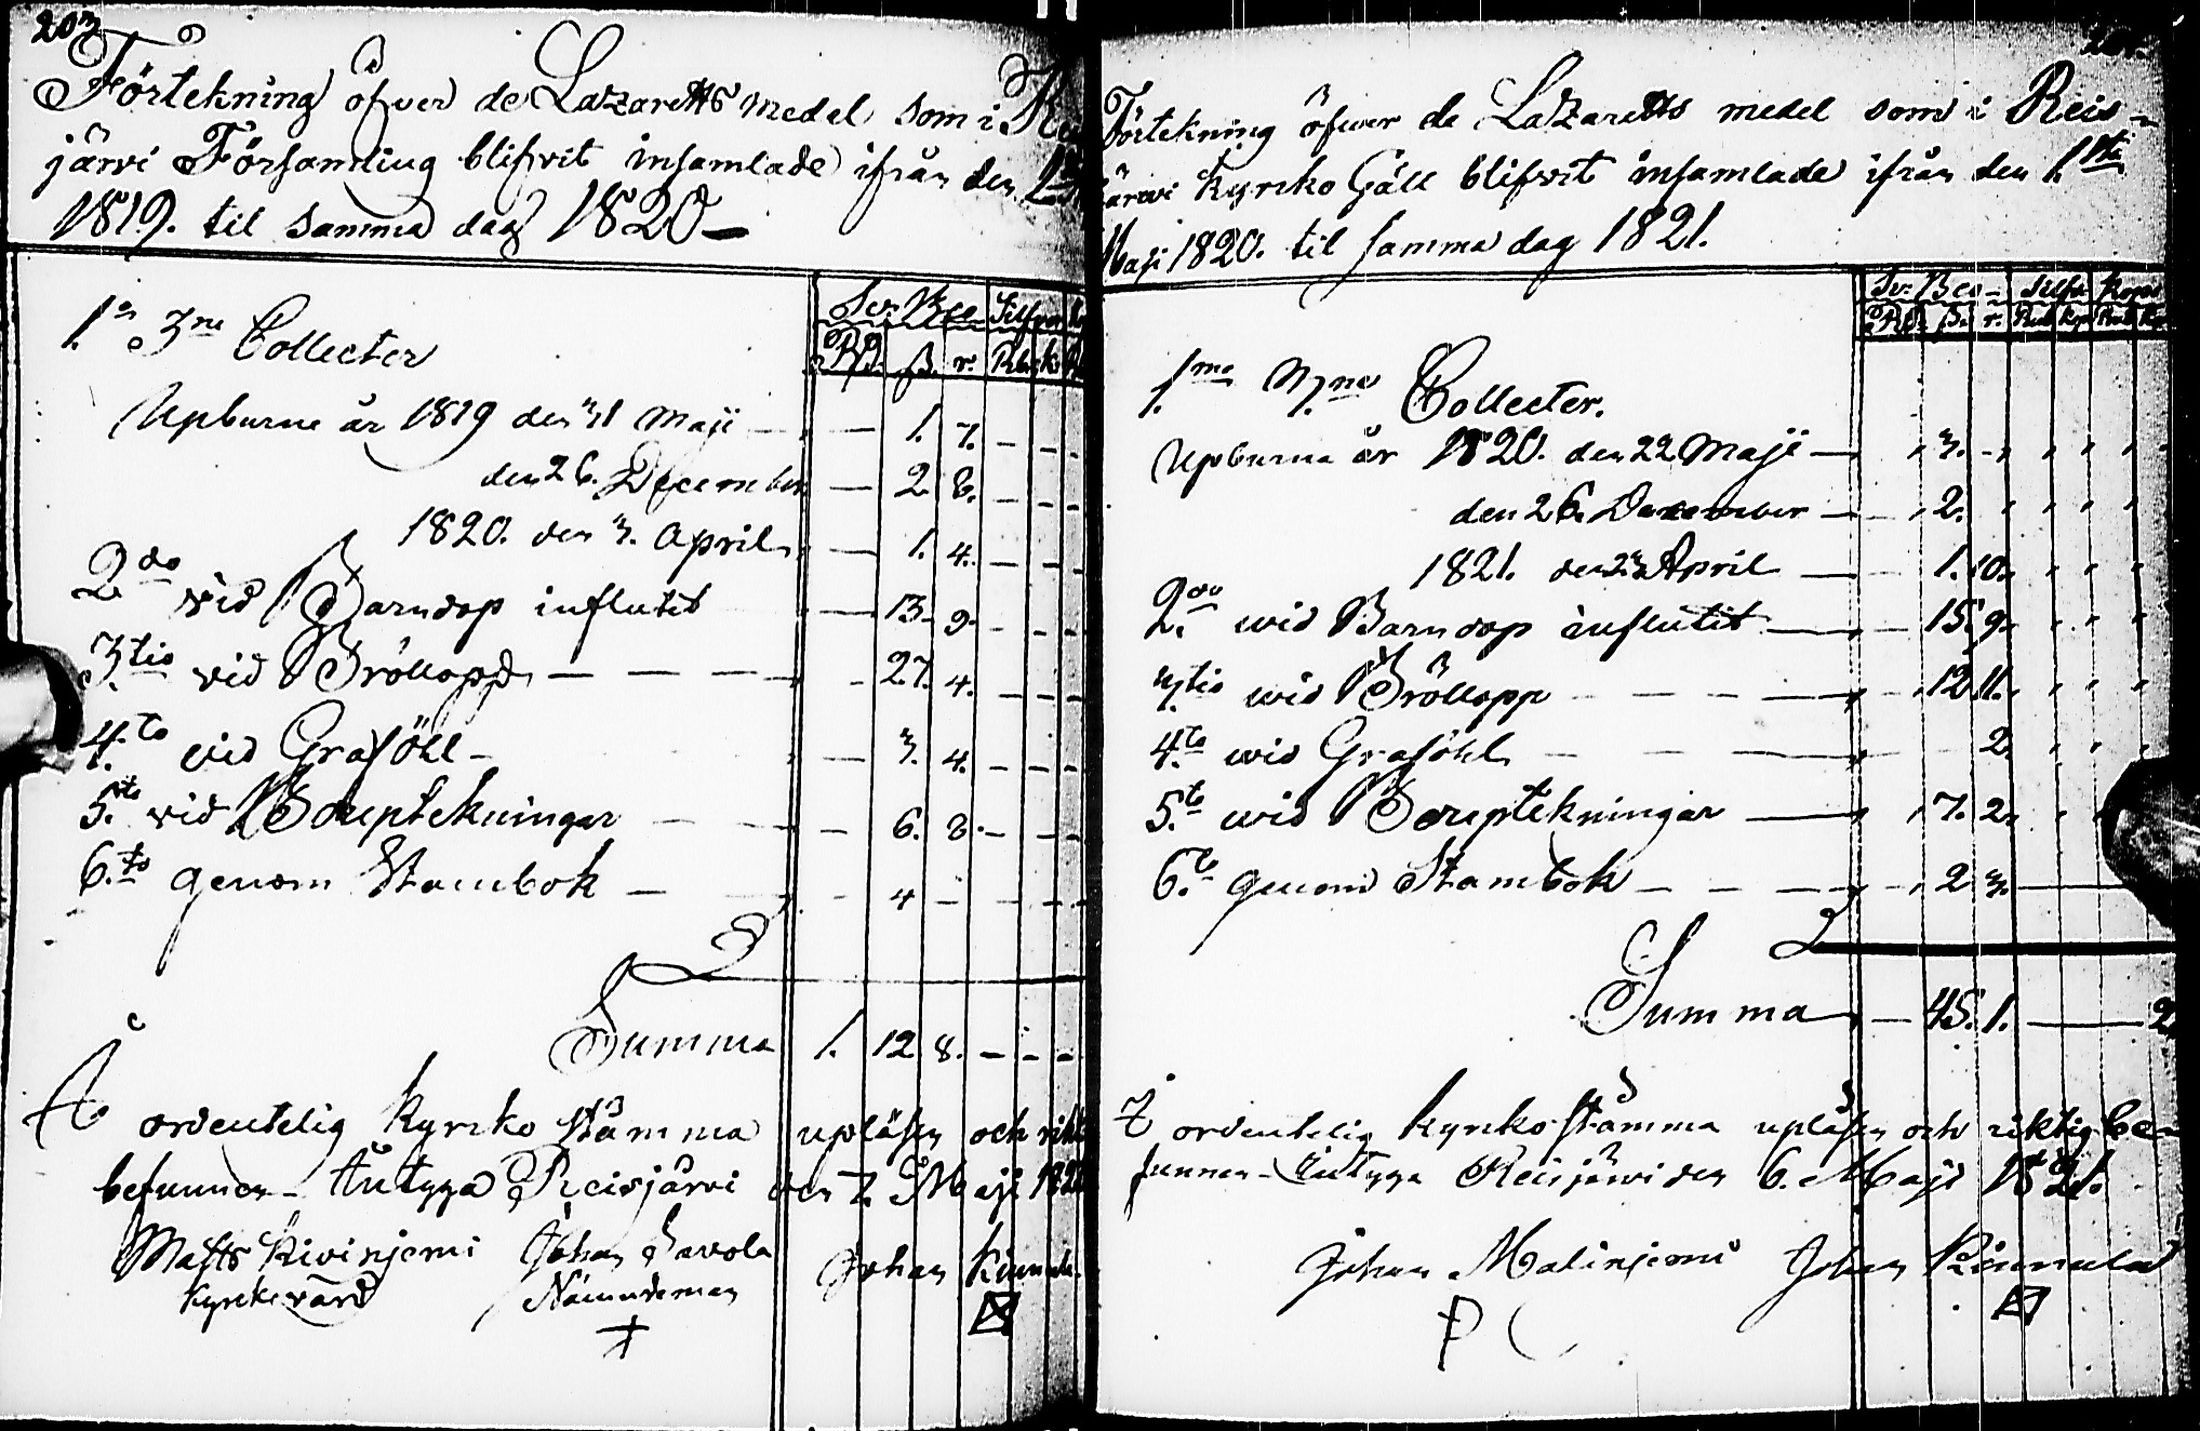 203
Förtekning öfver de Lazaretts medel som i Rei
järvi Församling blifvit insamlade ifrån den 1
1819. til samma dag 1820 –
Sv. Bco Silfver
RD. ß. r. Rub. k.
1.o 3.ne Collecter
Upburne år 1819 den 31 Maji — — 1. 7. – – –
den 26. December — 2 8. – – –
1820. den 3. April — 1. 4. – – –
2.do vid Barndop influtit — 13. 9. – – –
3.tio vid Bröllopp — — — — 27. 4. – – –
4.to vid Graföhl – — 3. 4. – – –
5.to vid Bouptekningar — — 6. 8. – – –
6.to genom Stambok — – 4 – – – –
Summa 1. 12 8. – – –
Å ordentelig Kyrko stämma upläsen och rikt
befunnen – Intyga Reisjärvi den 7. Maji 182
Matts Kivinjemi Johan Savola Johan Kinnula
Kyrkovärd Nämndeman
Förtekning öfver de Lazaretts medel som i Reis-
järvi Kyrko Gäll blifvit insamlade ifrån den 1.sta
Maji 1820. til samma dag 1821.
Sv. Bco Silfv. Kopp
RD. ß. r. Rub. Kop. Rub. Kop
1.mo 3.ne Collecter.
Upburne år 1820. den 22 Maji — 3. –
den 26. December — 2.
1821. den 23 April — 1. 10.
2.do wid Barndop influtit — 15. 9.
3.tio wid Bröllopp — — — 12. 11.
4.to wid Graföhl — — — 2.
5.to wid Bouptekningar — 7. 2.
6.to genom Stambok — — — 2. 3. —
Summa — 45. 1. — 2
I ordentelig Kyrko stämma upläsen och riktig be-
funnen – Intyga Reisjärvi den 6. Maji 1821.
Johan Malinjemi Johan Kinnula